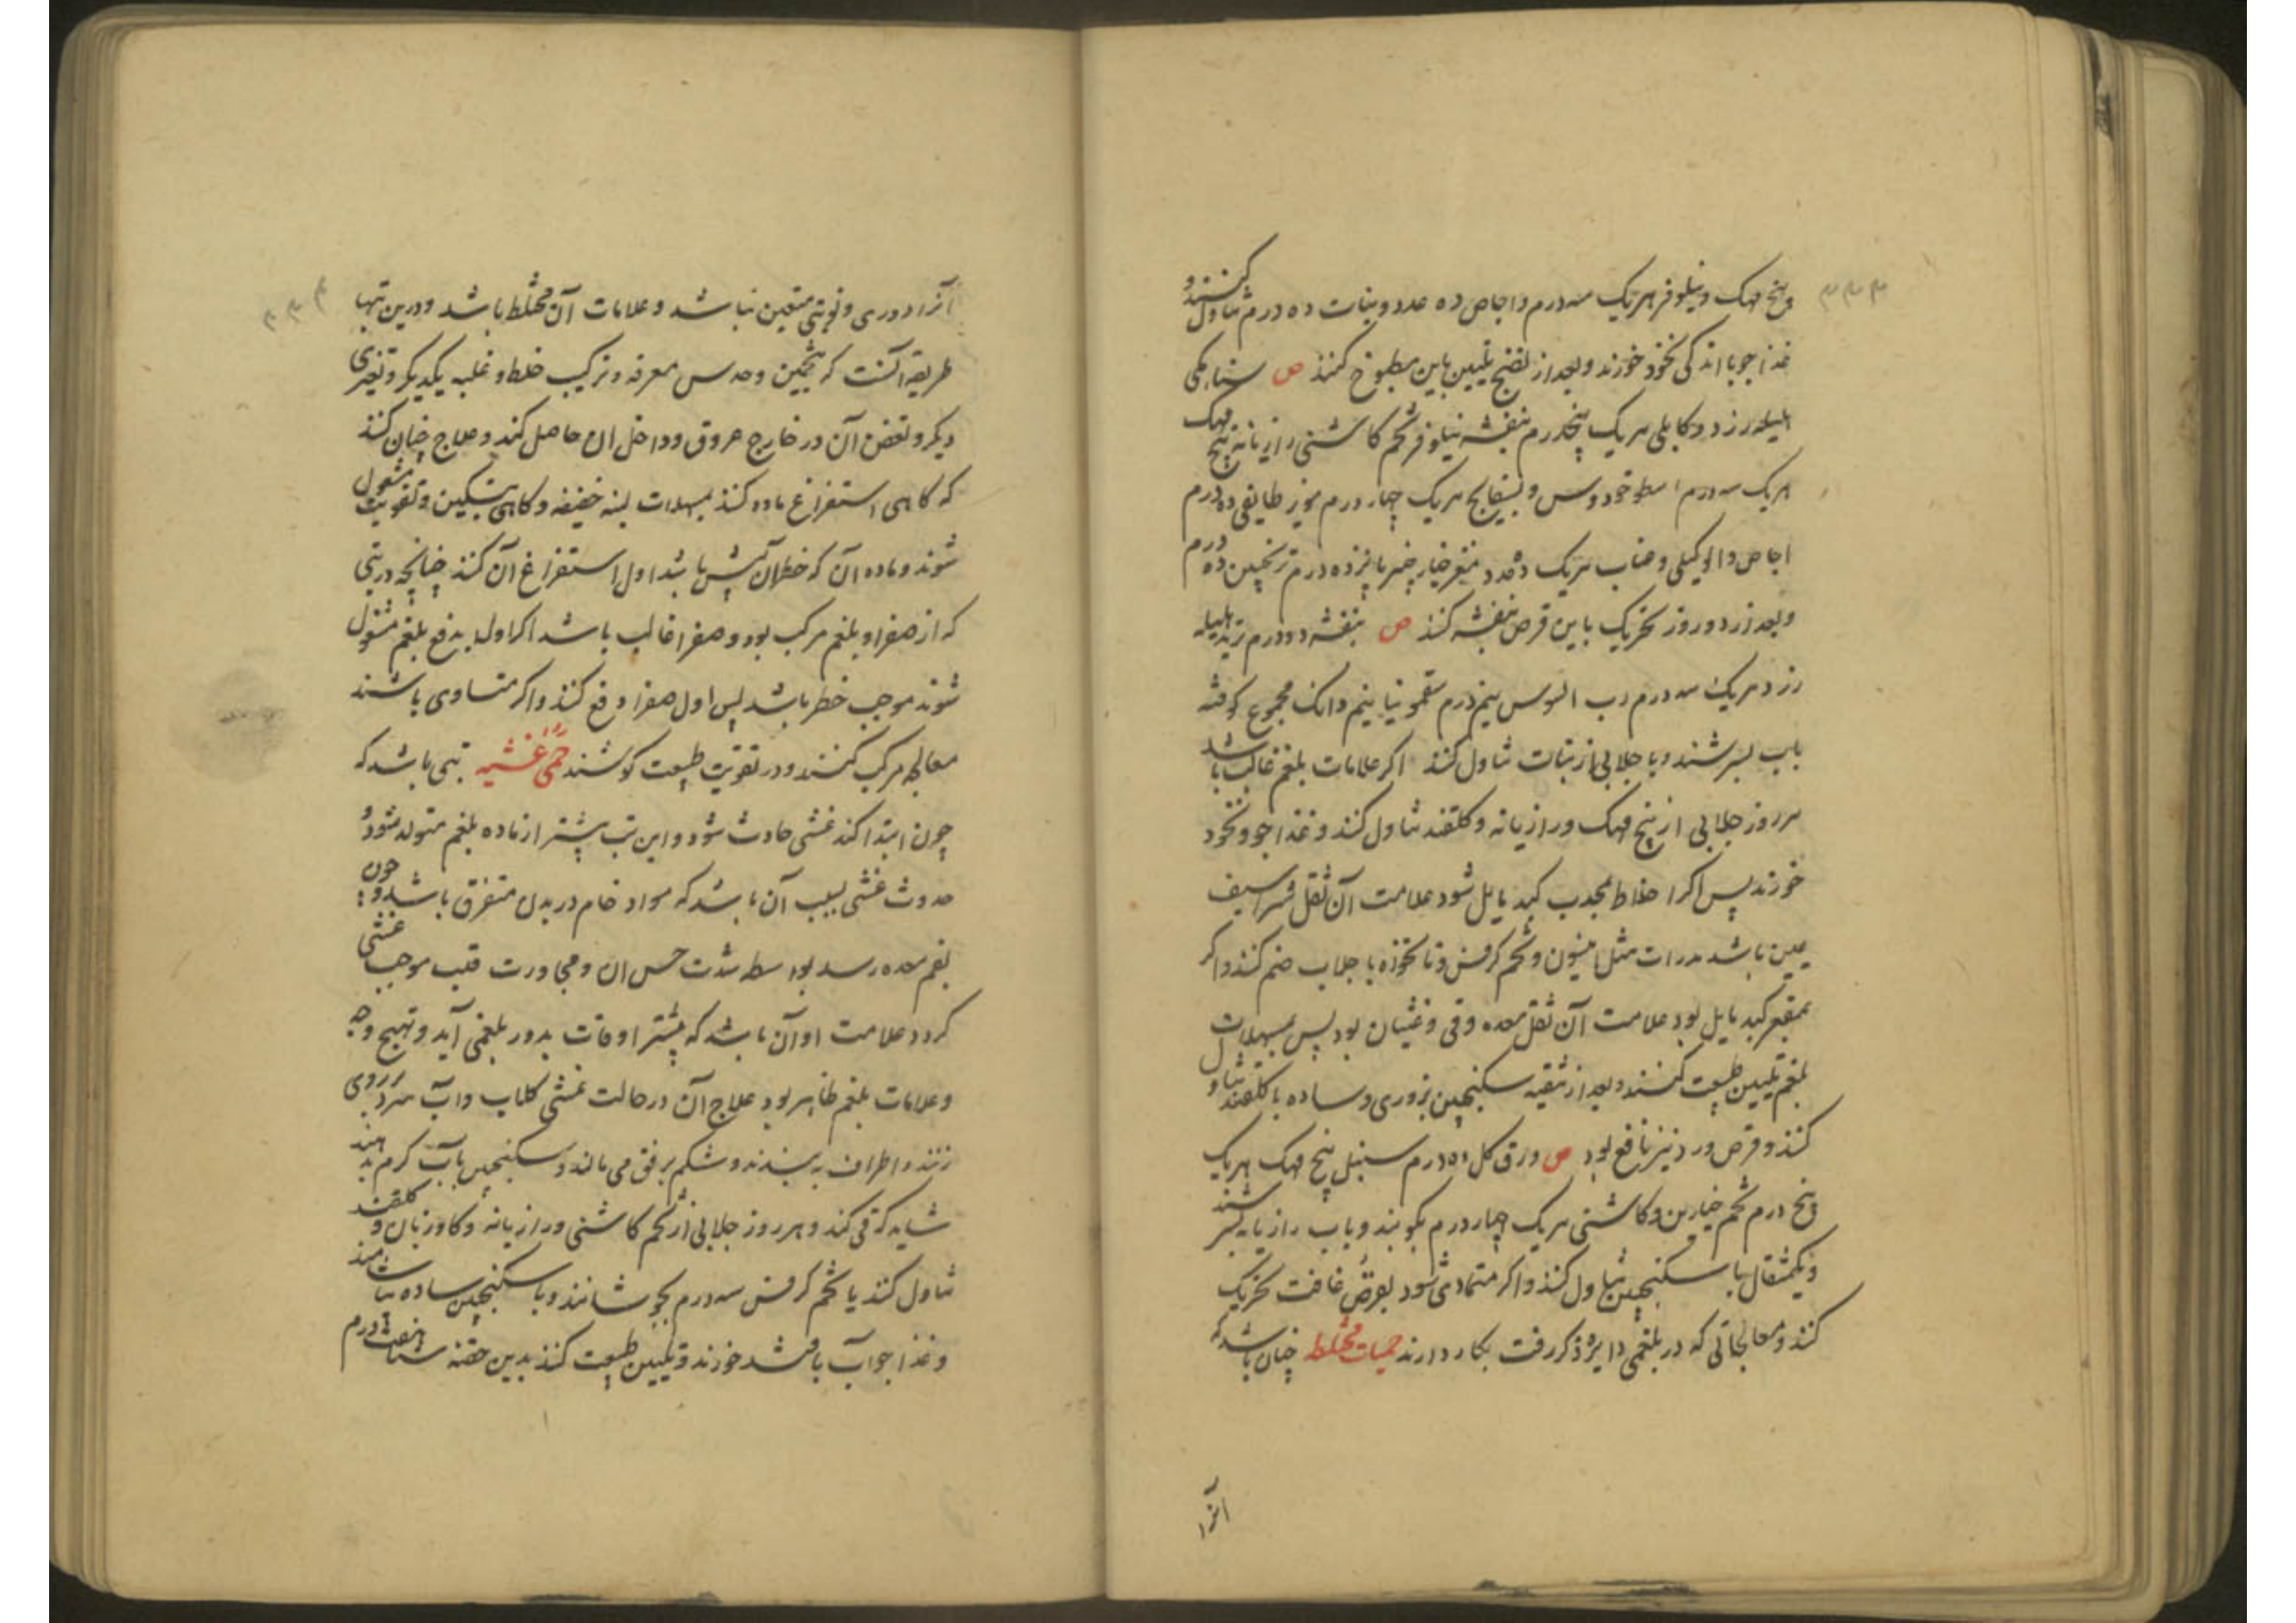 ۳۳۳
و بیخ مهک و نیلوفر هریک سه درم و اجاص ده عدد و نبات ده درم تناول کنند و
غذا جو با اندکی نخود خورند و بعد از نضج تلیین باین مطبوخ کنند ص سناء مکی
هلیله زرد و کابلی هریک پنجدرم بنفشه نیلوفر تخم کاسنی رازیانه بیخ مهک
هریک سه درم اسطوخودوس و بسفایج هریک چهار درم مویز طایفی ده درم
اجاص و الوکیلی و عناب هریک ده عدد مغز خیارچنبر پانزده درم ترنجبین ده درم
و بعد از دو روز تحریک باین قرص بنفشه کنند ص بنفشه دو درم تربد هلیله
زرد هریک سه درم رب السوس نیم درم سقمونیا نیم دانک مجموع کوفته
باب بسرشند و با جلابی از نبات تناول کنند اکر علامات بلغم غالب باشد
هر روز جلابی از بیخ مهک و رازیانه و کلقند تناول کنند و غذا جو و نخود
خورند پس اکر اخلاط بمحدب کبد مایل شود علامت آن ثقل شراسیف
یمین باشد مدرات مثل انیسون و تخم کرفس و نانخوه با جلاب ضم کنند و اکر
بمقعر کبد مایل بود علامت آن ثقل معده و قی و غثیان بود پس بمسهلات
بلغم تلیین طبیعت کنند و بعد از تنقیه سکنجبین بزوری و ساده با کلقند تناول
کنند و قرص ورد نیز نافع بود ص ورق کل ده درم سنبل بیخ مهک هریک
پنج درم تخم خیارین و کاسنی هریک چهار درم بکوبند و باب رازیانه بسرشند
و یکمثقال با سکنجبین تناول کنند و اکر متمادی شود بقرص غافت تحریک
کنند و معالجاتی که در بلغمی دایره ذکر رفت بکار دارند حمیات مختلط چنان باشد که
آنرا
۳۳۴
آنرا دوری و نوبتی متعین نباشد و علامات آن مختلط باشد و درین تبها
طریقه آنست که بتخمین و حدس معرفه و ترکیب خلط و غلبه یکدیکر و تعری
دیکر و تعفن آن در خارج عروق و داخل ان حاصل کند و علاج چنان کنند
که کاهی استفراغ ماده کنند بمسهلات لینه خفیفه و کاهی بتسکین و تقویت مشغول
شوند و ماده آن که خطر آن بیش باشد اول استفراغ آن کنند چنانچه در تبی
که از صفرا و بلغم مرکب بود و صفرا غالب باشد اکر اول بدفع بلغم مشغول
شوند موجب خطر باشد پس اول صفرا دفع کنند و اکر متساوی باشند
معالجه مرکب کنند و در تقویت طبیعت کوشند حمی غشیه تبی باشد که
چون ابتدا کند غشی حادث شود و این تب بیشتر از ماده بلغم متولد شود و
حدوث غشی بسبب آن باشد که مواد خام در بدن متفرق باشد و چون
بفم معده رسد بواسطه شدت حس ان و مجاورت قلب موجب غشی
کردد علامت او آن باشد که بیشتر اوقات بدور بلغمی آید و تهیج وجه
و علامات بلغم ظاهر بود علاج آن در حالت غشی کلاب و آب سرد بر روی
زنند و اطراف به بندند و شکم برفق می مالند و سکنجبین باب کرم بدهند
شاید که قی کند و هر روز جلابی از تخم کاسنی و رازیانه و کاوزبان و کلقند
تناول کنند یا تخم کرفس سه درم بجوشانند و با سکنجبین ساده بیاشامند
و غذا جواب با خورند و تلیین طبیعت کنند بدین حقنه سنا هفت درم